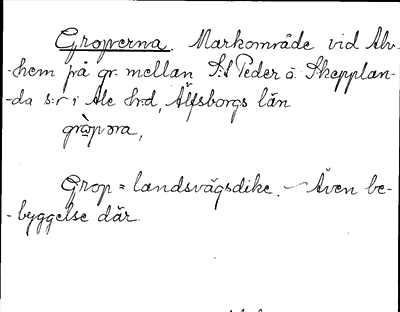 Groperna. Markområde vid Alv-
-hem på gr. mellan S:t Peder o. Skepplan-
-da s:r i Ale hrd, Älfsborgs län
gròpəra,
Grop = landsvägsdike. — Även be-
-byggelse där.